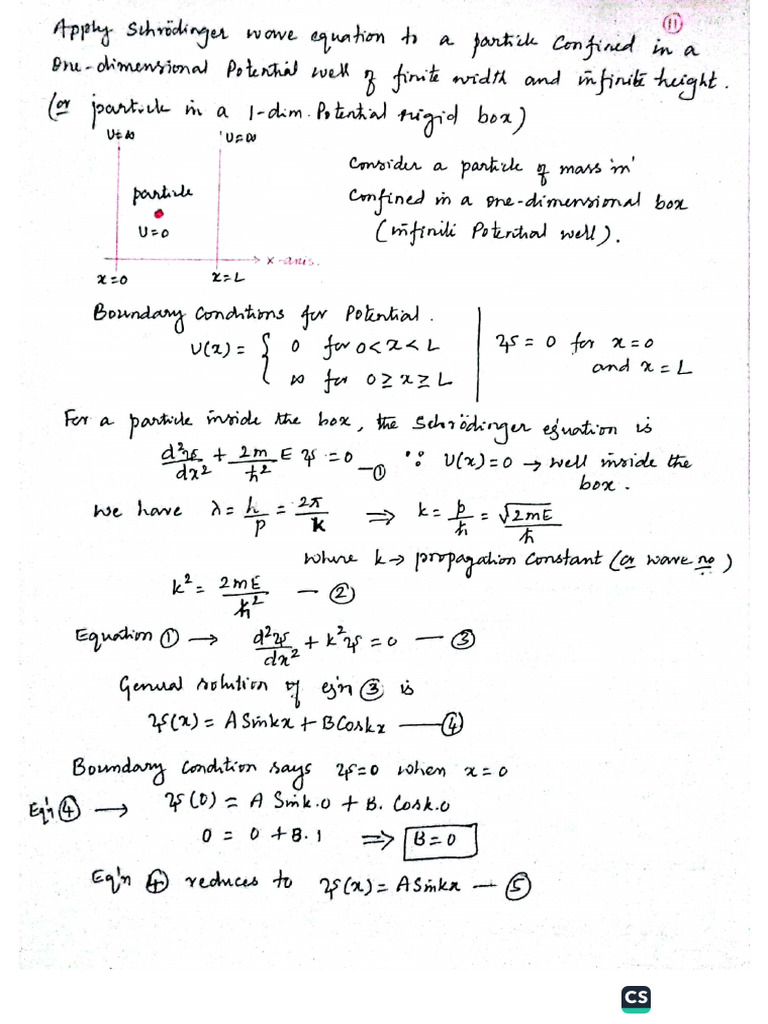 (11)
Apply Schrödinger wave equation to a particle confined in a
One-dimensional Potential well of finite width and infinite height.
(or particle in a 1-dim. Potential rigid box)
U=∞ U=∞
particle
U=0
x-axis.
x=0 x=L
Consider a particle of mass 'm'
Confined in a one-dimensional box
(infinite Potential well).
Boundary Conditions for Potential.
U(x) = { 0 for 0<x<L
∞ for 0≥x≥L
ψ = 0 for x=0
and x=L
For a particle inside the box, the Schrödinger equation is
d²ψ/dx² + 2m/ħ² E ψ = 0 —① ∵ U(x)=0 → well inside the
box.
we have λ = h/p = 2π/k ⇒ k = p/ħ = √2mE/ħ
where k → propagation Constant (or wave no)
k² = 2mE/ħ² — ②
Equation ① → d²ψ/dx² + k²ψ = 0 — ③
General solution of eq'n ③ is
ψ(x) = A Sinkx + B Coskx — ④
Boundary Condition says ψ=0 when x=0
Eq'n ④ → ψ(0) = A Sink.0 + B. Cosk.0
0 = 0 + B.1 ⇒ B=0
Eq'n ④ reduces to ψ(x) = A Sinkx — ⑤
CS